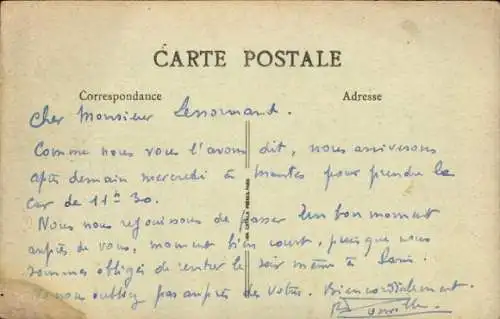 CARTE POSTALE
Correspondance
Adresse
Cher Monsieur Lenormand.
Comme nous vous l'avons dit, nous arriverons
après demain mercredi à Mantes pour prendre le
car de 11h 30.
Nous nous réjouissons de passer un bon moment
auprès de vous, moment bien court, puisque nous
sommes obligés de rentrer le soir même à Paris.
nous oubliez pas auprès des vôtres. Bien cordialement.